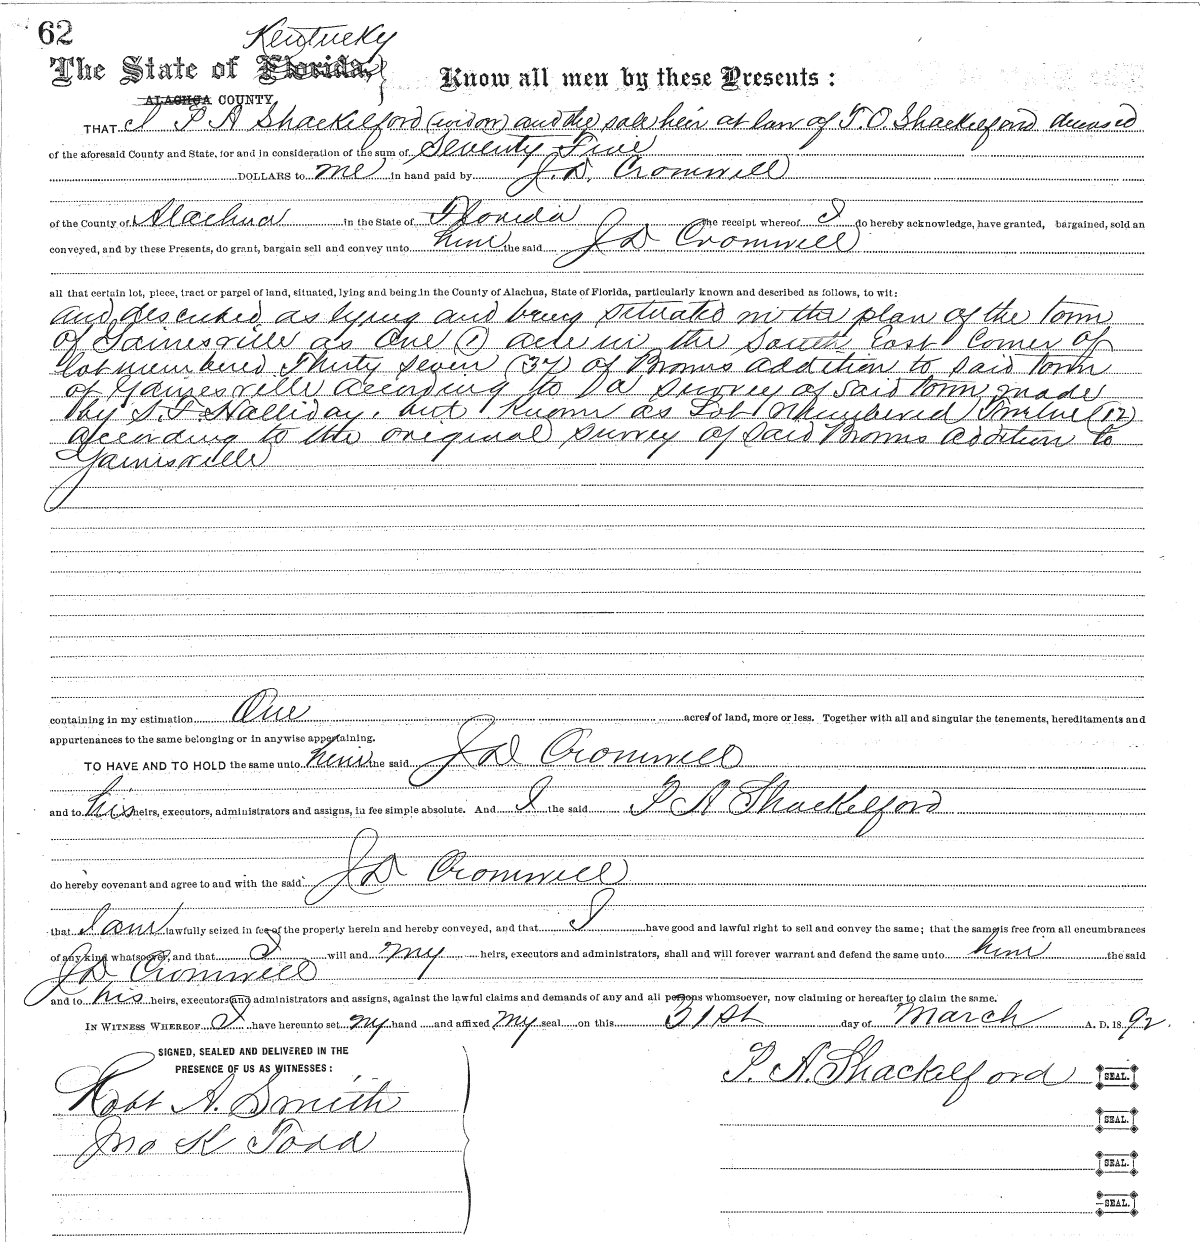 62
Kentucky
The State of Florida,
ALACHUA COUNTY.
Know all men by these Presents:
THAT I P A Shackelford (widow) and the sole heir at law of T.O. Shackelford deceased
of the aforesaid County and State, for and in consideration of the sum of Seventy Five
DOLLARS to me in hand paid by J.D. Cromwell
of the County of Alachua in the State of Florida the receipt whereof I do hereby acknowledge, have granted, bargained, sold an
conveyed, and by these Presents, do grant, bargain sell and convey unto him the said J D Cromwell
all that certain lot, piece, tract or parpel of land, situated, lying and being in the County of Alachua, State of Florida, particularly known and described as follows, to wit:
and described as lying and being situated in the plan of the town
of Gainesville as One (1) acre in the South East Corner of
lot numbered Thirty Seven (37) of Browns addition to said town
of Gainesville according to a survey of said town made
by S.F. Halliday, but known as Lot Numbered Twelve (12)
according to the original survey of said Browns addition to
Gainesville
containing in my estimation One acres of land, more or less. Together with all and singular the tenements, hereditaments and
appurtenances to the same belonging or in anywise appertaining.
TO HAVE AND TO HOLD the same unto him the said J D Cromwell
and to his heirs, executors, administrators and assigns, in fee simple absolute. And I the said P A Shackelford
do hereby covenant and agree to and with the said J D Cromwell
that I am lawfully seized in fee of the property herein and hereby conveyed, and that I have good and lawful right to sell and convey the same; that the same is free from all encumbrances
of any kind whatsoever, and that I will and my heirs, executors and administrators, shall and will forever warrant and defend the same unto him the said
J D Cromwell
and to his heirs, executors and administrators and assigns, against the lawful claims and demands of any and all persons whomsoever, now claiming or hereafter to claim the same.
IN WITNESS WHEREOF I have hereunto set my hand and affixed my seal on this 31st day of March A. D. 1892.
SIGNED, SEALED AND DELIVERED IN THE
PRESENCE OF US AS WITNESSES:
P. A. Shackelford SEAL.
Robt A. Smith
SEAL.
Jno K Todd
SEAL.
SEAL.